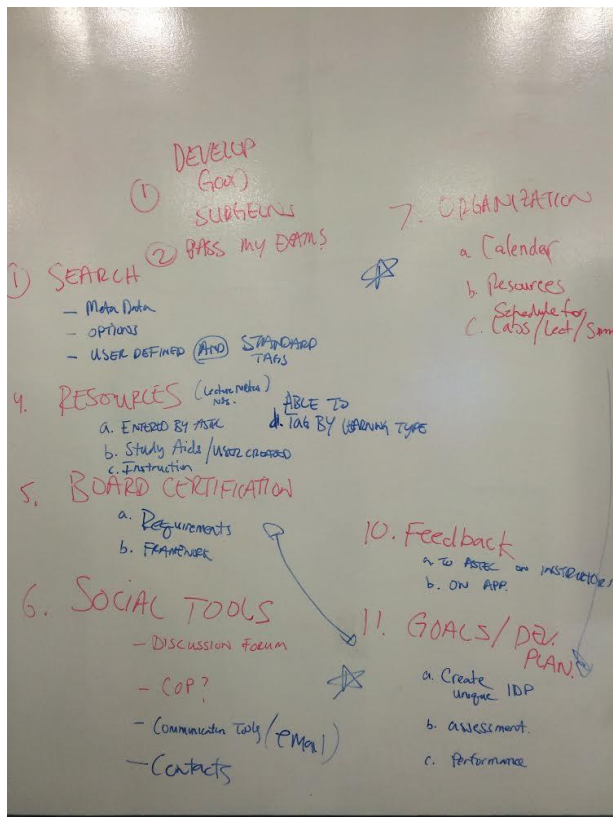 DEVELOP
① GOOD
SURGEONS
② PASS MY EXAMS
① SEARCH
- Meta Data
- OPTIONS
- USER DEFINED AND STANDARD
TAGS
4. RESOURCES (Lecture
a. ENTERED BY ASTEC
b. Study Aids/USER CREATED
c. Instruction
ABLE TO
d. TAG BY LEARNING TYPE
5. BOARD CERTIFICATION
a. Requirements
b. FRAMEWORK
6. SOCIAL TOOLS
- DISCUSSION FORUM
- COP?
- Communication Tools/email)
- Contacts
7. ORGANIZATION
a. Calendar
b. Resources
Schedule for
c. Labs/Lect/Sim
10. Feedback
a. TO ASTEC ON INSTRUCTORS
b. ON APP.
11. GOALS/DEV.
PLAN.
a. Create
unique IDP
b. assessment.
c. Performance